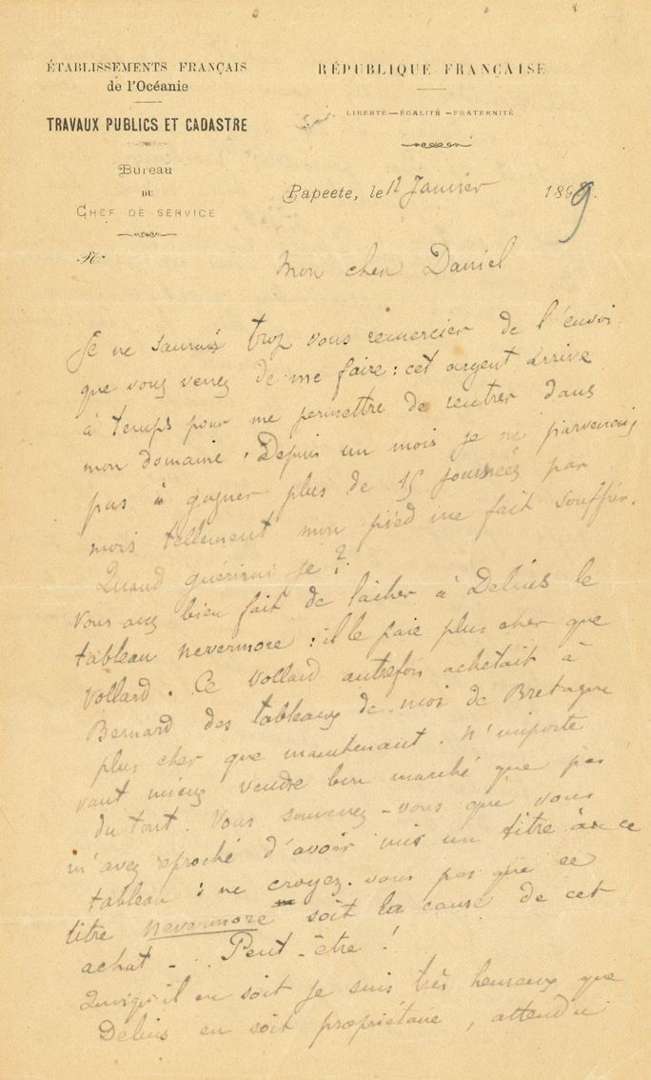 ÉTABLISSEMENTS FRANÇAIS
de l'Océanie
TRAVAUX PUBLICS ET CADASTRE
Bureau
DU
CHEF DE SERVICE
N°
RÉPUBLIQUE FRANÇAISE
LIBERTÉ—ÉGALITÉ—FRATERNITÉ
Papeete, le 12 Janvier 1899.
Mon cher Daniel
Je ne saurais trop vous remercier de l'envoi
que vous venez de me faire : cet argent arrive
à temps pour me permettre de rentrer dans
mon domaine. Depuis un mois je ne parvenais
pas à gagner plus de 15 journées par
mois tellement mon pied me fait souffrir.
Quand guérirai je ?
Vous avez bien fait de lâcher à Delius le
tableau nevermore : il le paie plus cher que
Vollard. Ce Vollard autrefois achetait à
Bernard des tableaux de moi de Bretagne
plus cher que maintenant. N'importe
vaut mieux vendre bon marché que pas
du tout. Vous souvenez-vous que vous
m'avez reproché d'avoir mis un titre à ce
tableau : ne croyez-vous pas que ce
titre nevermore soit la cause de cet
achat - . . Peut-être !
Quoiqu'il en soit je suis très heureux que
Delius en soit propriétaire, attendu